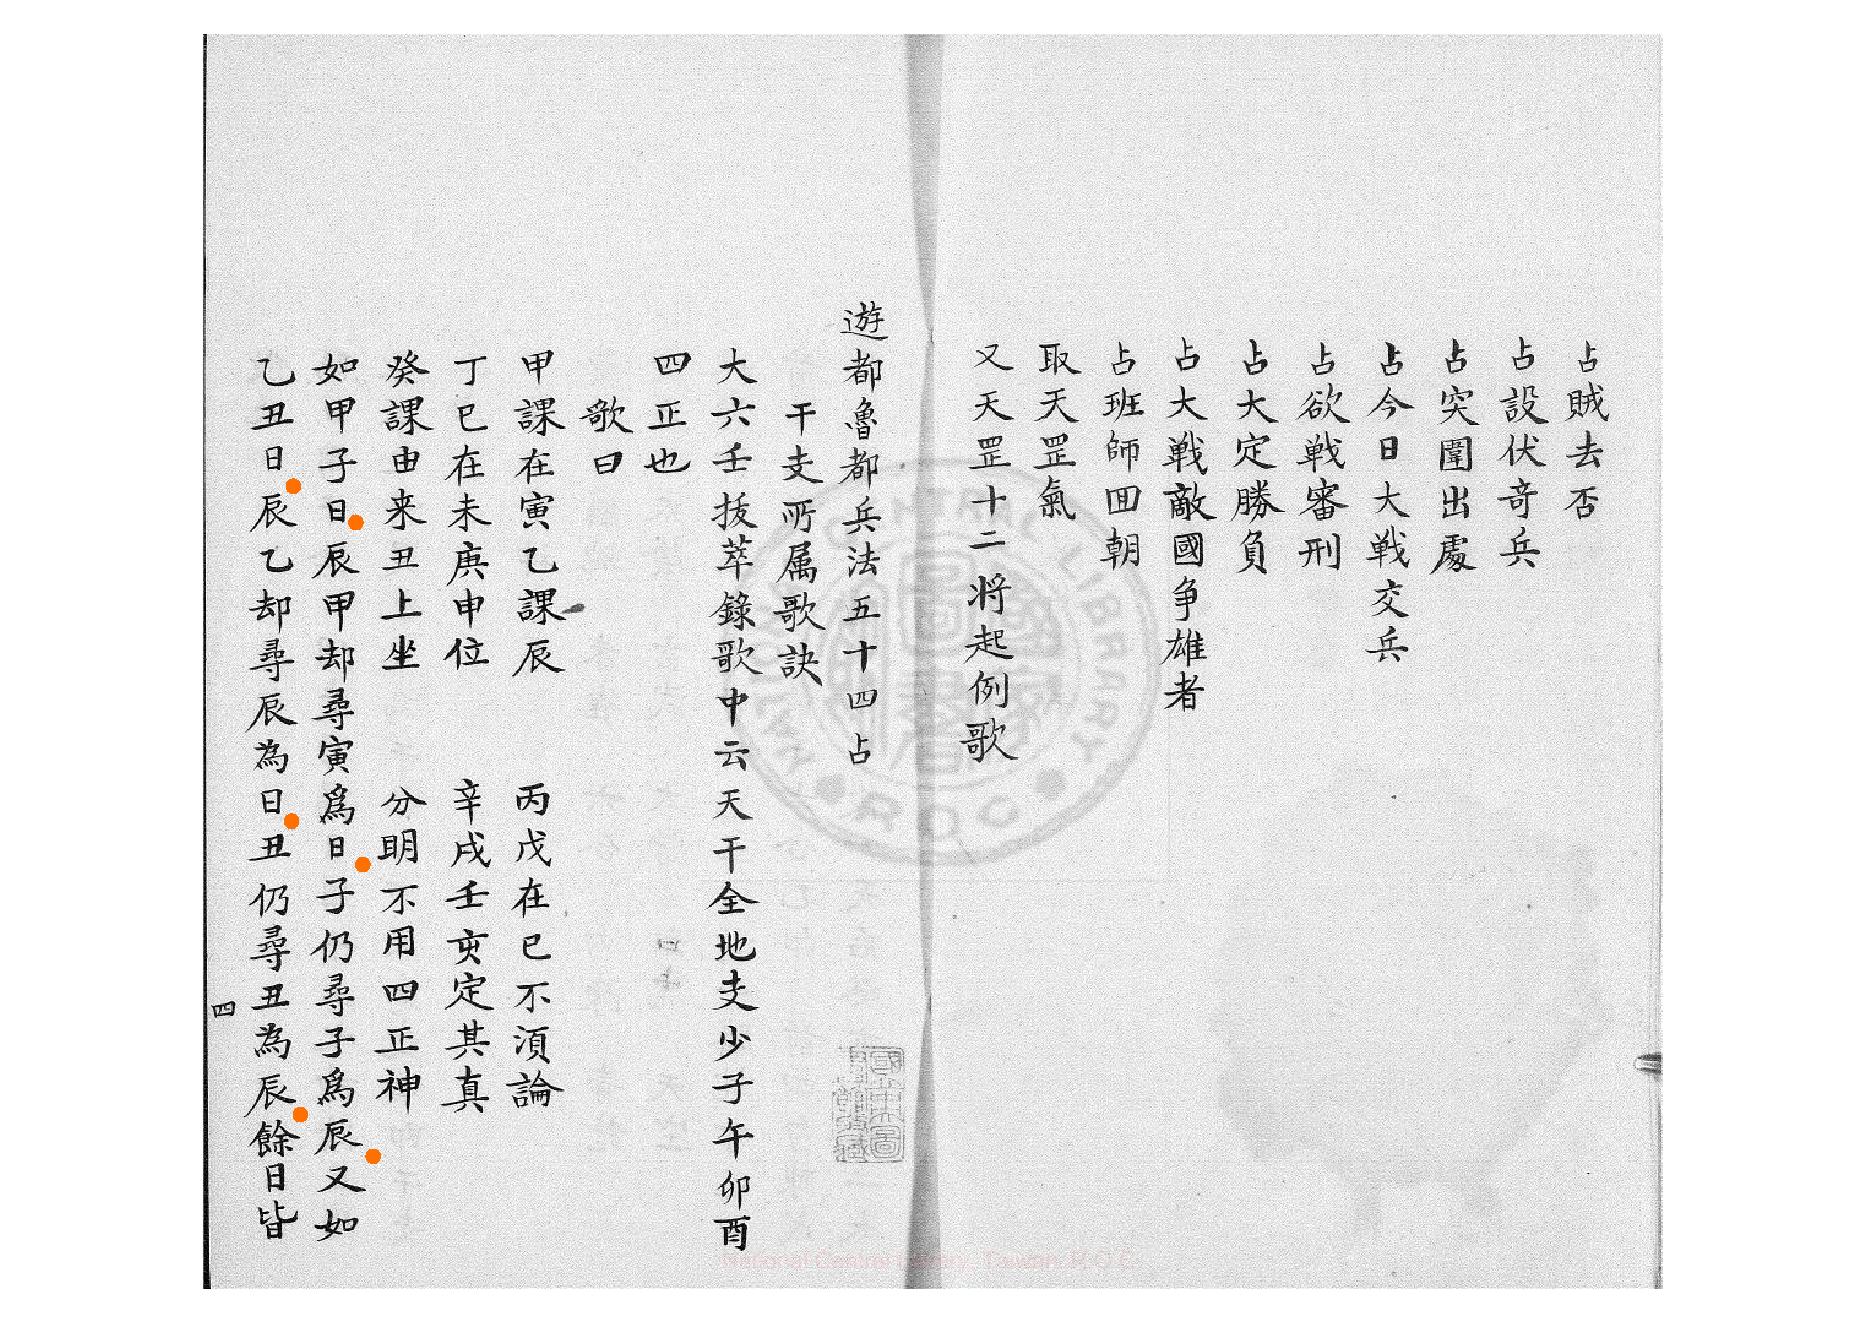 占賊去否
占設伏奇兵
占突圍出處
占今日大戦交兵
占欲戦審刑
占大定勝負
占大戦敵國争雄者
占班師回朝
取天罡氣
又天罡十二将起例歌
遊都魯都兵法五十四占
干支所属歌訣
大六壬拔萃錄歌中云天干全地支少子午卯酉
四正也
歌曰
甲課在寅乙課辰 丙戊在巳不須論
丁巳在未庚申位 辛戌壬亥定其真
癸課由来丑上坐 分明不用四正神
如甲子日辰甲却尋寅爲日子仍尋子爲辰又如
乙丑日辰乙却尋辰為日丑仍尋丑為辰餘日皆
四
National Central Library, Taiwan, R.O.C